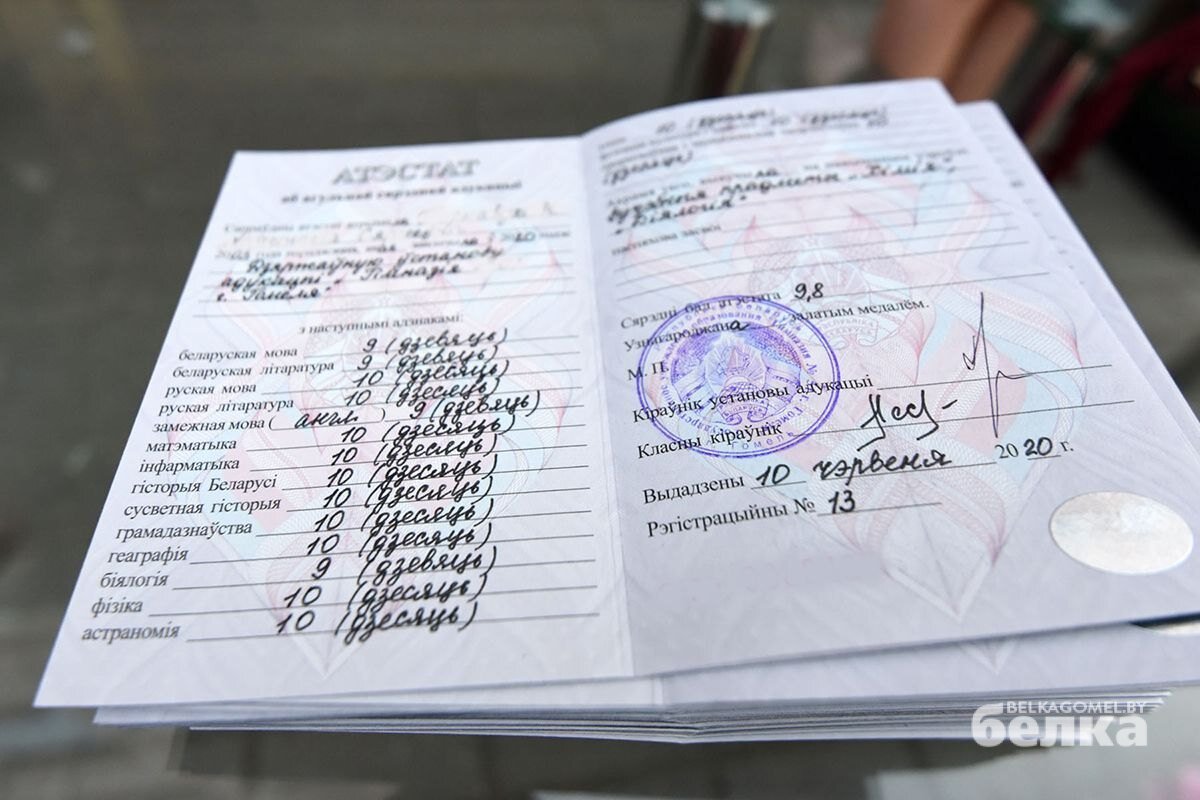 АТЭСТАТ
аб агульнай сярэдняй адукацыі
2020
Дзяржаўную ўстанову
адукацыі "Гімназія
г. Гомеля"
з наступнымі адзнакамі:
беларуская мова 9 (дзевяць)
беларуская літаратура 9 (дзевяць)
руская мова 10 (дзесяць)
руская літаратура 10 (дзесяць)
замежная мова ( англ. ) 9 (дзевяць)
матэматыка 10 (дзесяць)
інфарматыка 10 (дзесяць)
гісторыя Беларусі 10 (дзесяць)
сусветная гісторыя 10 (дзесяць)
грамадазнаўства 10 (дзесяць)
геаграфія 10 (дзесяць)
біялогія 9 (дзевяць)
фізіка 10 (дзесяць)
астраномія 10 (дзесяць)
10 (дзесяць)
10 (дзесяць)
10
(дзесяць)
вучэбныя прадметы "Хімія",
"Біялогія"
паспяхова засвоі
Сярэдні бал атэстата 9,8
Узнагароджана залатым медалём.
М. П.
Кіраўнік установы адукацыі
Класны кіраўнік
Выдадзены 10 чэрвеня 2020 г.
Рэгістрацыйны № 13
BELKAGOMEL.BY
белка